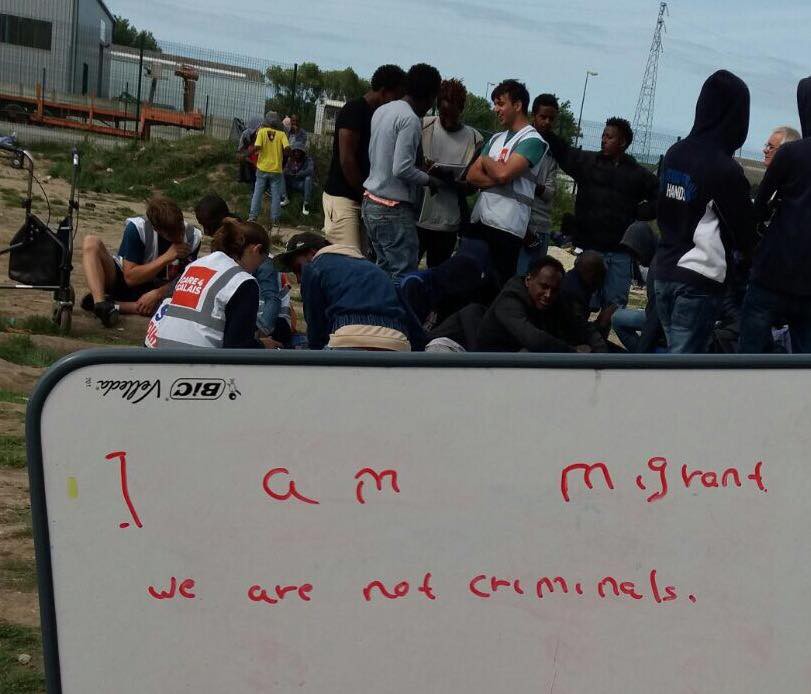 CARE4
CALAIS
HANDS
BIC Velleda
I am migrant
we are not criminals.